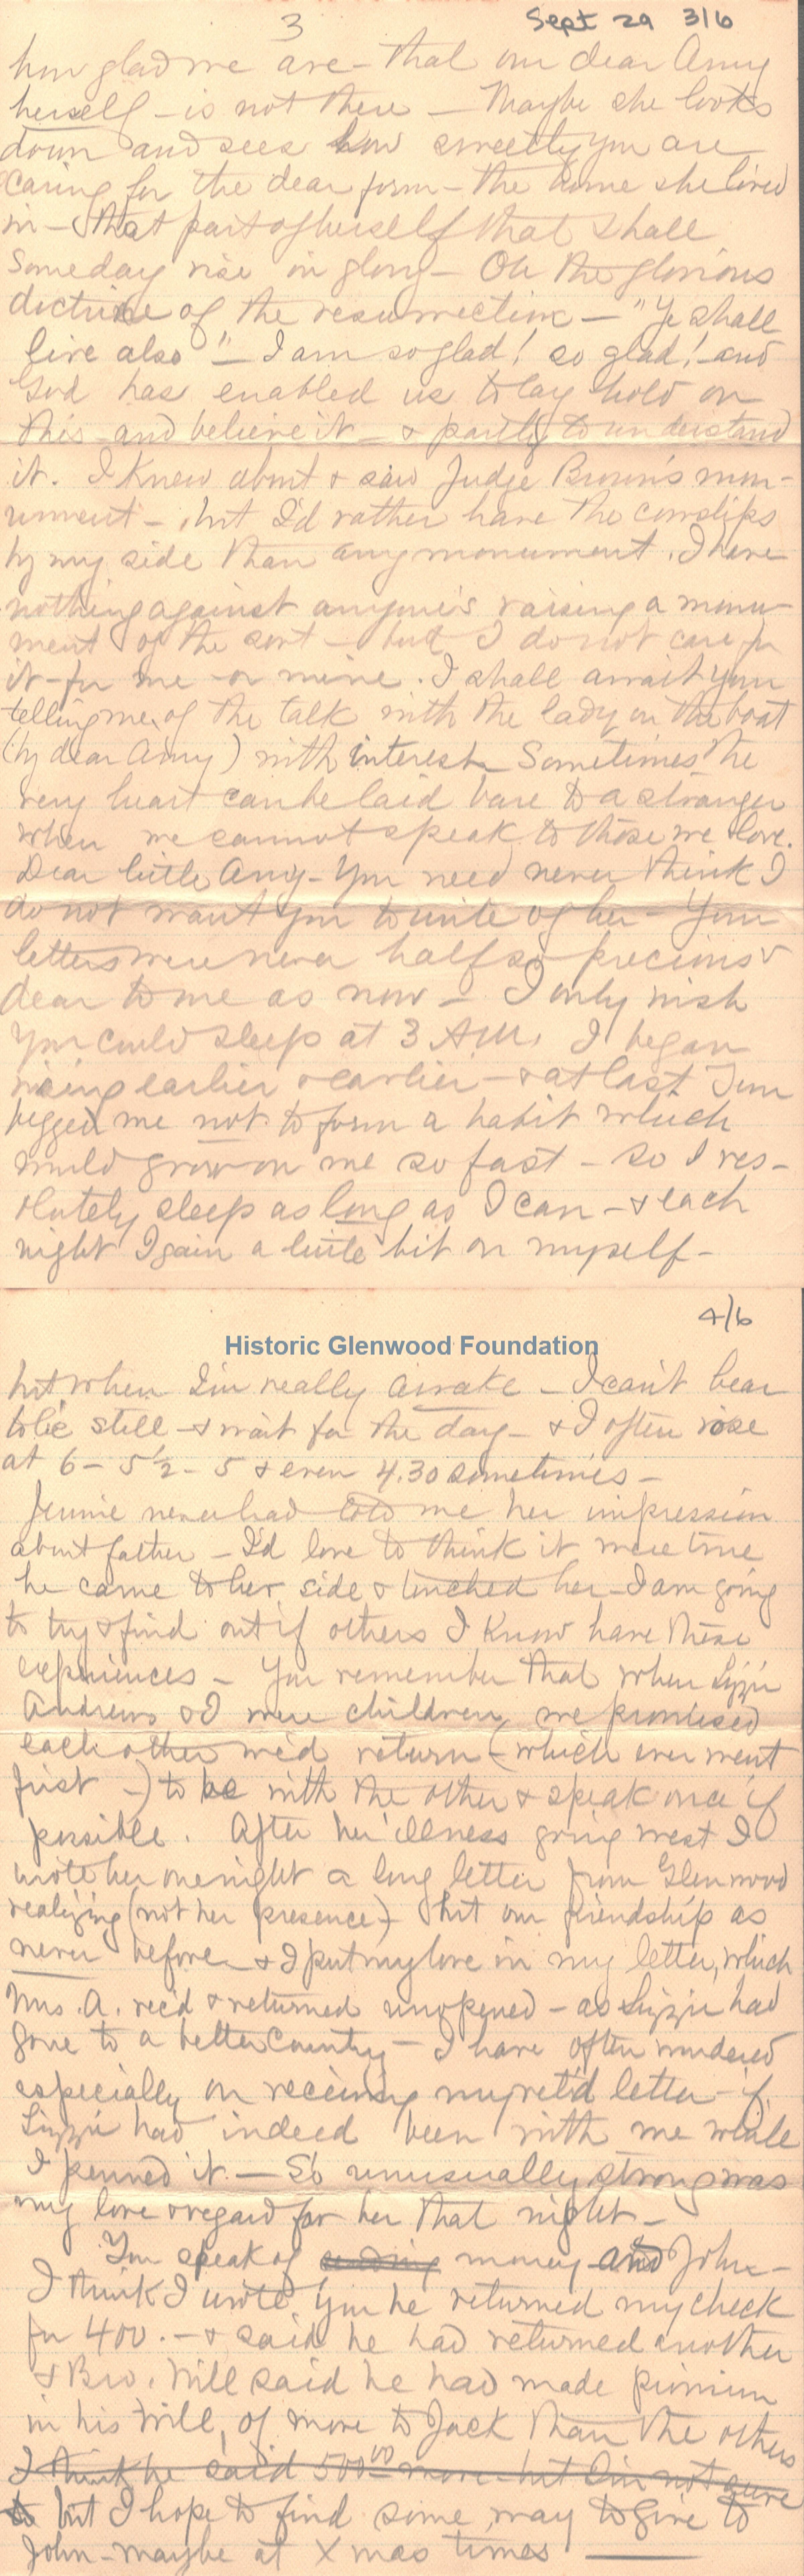 3
Sept 29 3/6
how glad we are - that our dear Amy
herself - is not there - Maybe she looks
down and sees how sweetly you are
caring for the dear form - the home she lived
in - that part of herself that shall
some day rise in glory - Oh the glorious
doctrine of the resurrection - "Ye shall
live also" - I am so glad! so glad! and
God has enabled us to lay hold on
this and believe it - & partly to understand
it. I knew about & saw Judge Brown's mon-
ument - but I'd rather have the cowslips
by my side than any monument. I have
nothing against anyone's raising a monu-
ment of the sort - but I do not care for
it - for me or mine. I shall await your
telling me of the talk with the lady on the boat
(by dear Amy) with interest - Sometimes the
very heart can be laid bare to a stranger
when we cannot speak to those we love.
Dear little Amy - You need never think I
do not want you to write of her - Your
letters were never half so precious &
dear to me as now - I only wish
you could sleep at 3 A.M. I began
rising earlier & earlier - & at last Jim
begged me not to form a habit which
would grow on me so fast - so I res-
olutely sleep as long as I can - & each
night I gain a little bit on myself -
4/6
Historic Glenwood Foundation
but when I'm really awake - I can't bear
to lie still - & wait for the day - & I often rose
at 6 - 5 1/2 - 5 & even 4.30 sometimes -
Jennie never had told me her impression
about father - I'd love to think it were true
he came to her side & touched her - I am going
to try & find out if others I know have these
experiences - You remember that when Lizzie
Andrews & I were children we promised
each other we'd return - (which ever went
first -) to be with the other & speak once if
possible. After her illness going west I
wrote her one night a long letter from Glenwood
realizing (not her presence) - but our friendship as
never before - & I put my love in my letter, which
Mrs. A. rec'd & returned unopened - as Lizzie had
gone to a better Country - I have often wondered
especially on receiving my ret'd letter - if
Lizzie had indeed been with me while
I penned it. - So unusually strong was
my love & regard for her that night -
You speak of money and John -
I think I wrote you he returned my check
for 400. - & said he had returned another
& Bro. Will said he had made provision
in his Will, of more to Jack than the others
I think he said 500 00 more - but I'm not sure
but I hope to find some way to give to
John - maybe at Xmas times